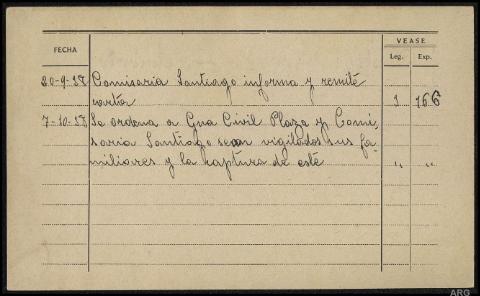 VEASE
FECHA
Leg. Exp.
20-9-58 Comisaria Santiago informa y remite
carta 3 766
7-10-58 Se ordena a Gua Civil Plaza y Comi,
saria Santiago sean vigilados sus fa-
miliares y la captura de este " "
ARG